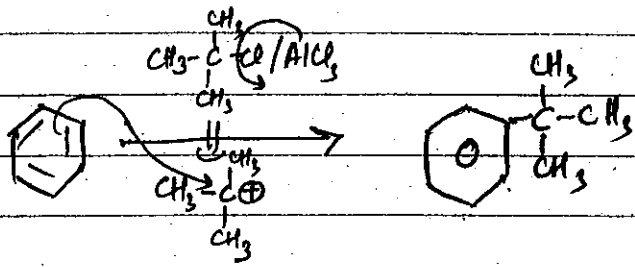 CH3
CH3-C-Cl/AlCl3
CH3
CH3
CH3-C⊕
CH3
CH3
C-CH3
CH3